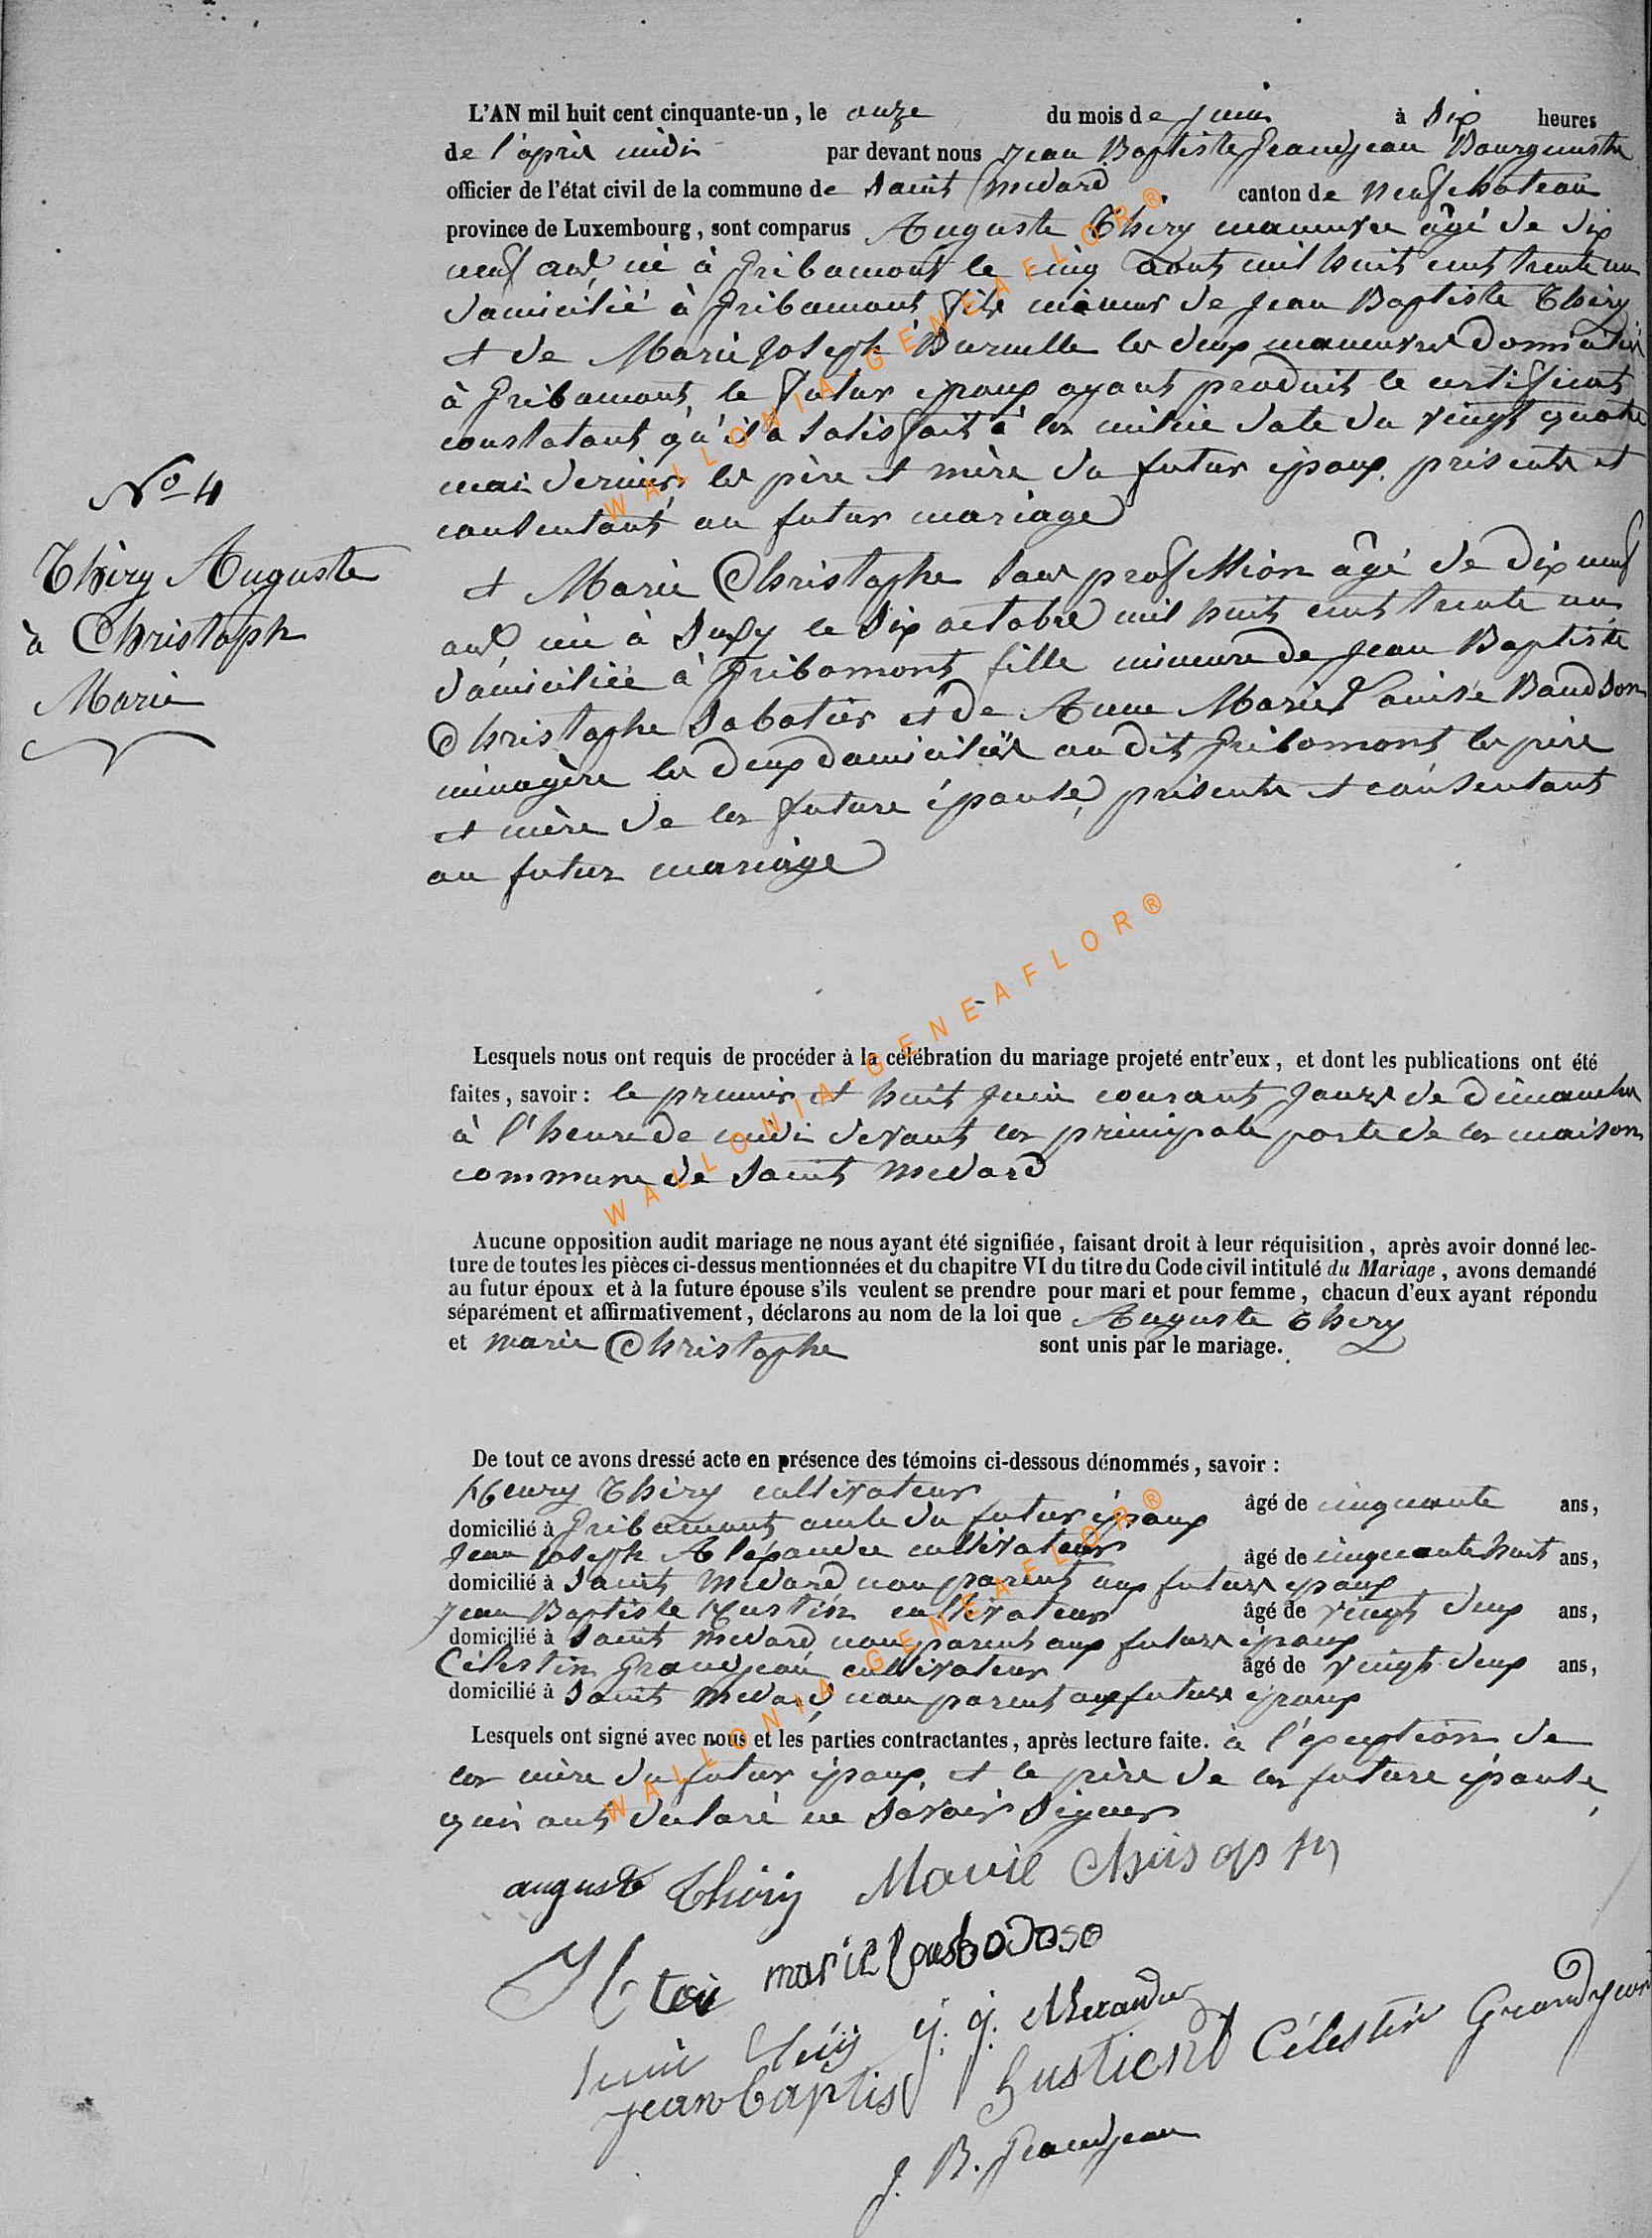 L'AN mil huit cent cinquante-un, le onze du mois de juin à Six heures
de l'après midi par devant nous Jean Baptiste Grandjean Bourgmestre
officier de l'état civil de la commune de Saint Medard canton de Neufchateau
province de Luxembourg, sont comparus Auguste Thiry manœuvre âgé de dix
neuf ans né à Gribomont le cinq août mil huit cent trente un
domicilié à Gribomont fils mineur de Jean Baptiste Thiry
et de Marie Joseph les deux manœuvres domiciliés
à Gribomont, le futur époux ayant produit le certificat
constatant qu'il a satisfait à la milice date du vingt quatre
mai dernier, les père et mère du futur époux présents et
consentant au futur mariage
N° 4
Thiry Auguste
à Christoph
Marie
et Marie Christophe sans profession âgé de dix neuf
ans née à Suxy le Six octobre mil huit cent trente un
domiciliée à Gribomont fille mineure de Jean Baptiste
Christophe Sabotier et de Anne Marie Louise Baudson
ménagère les deux domiciliés au dit Gribomont les père
et mère de la future épouse, présents et consentant
au futur mariage
Lesquels nous ont requis de procéder à la célébration du mariage projeté entr'eux, et dont les publications ont été
faites, savoir : le premier et huit Juin courant Jours de dimanche
à l'heure de midi devant la principale porte de la maison
commune de Saint Medard
Aucune opposition audit mariage ne nous ayant été signifiée, faisant droit à leur réquisition, après avoir donné lec-
ture de toutes les pièces ci-dessus mentionnées et du chapitre VI du titre du Code civil intitulé du Mariage, avons demandé
au futur époux et à la future épouse s'ils veulent se prendre pour mari et pour femme, chacun d'eux ayant répondu
séparément et affirmativement, déclarons au nom de la loi que Auguste Thiry
et Marie Christophe sont unis par le mariage.
De tout ce avons dressé acte en présence des témoins ci-dessous dénommés, savoir :
Henry Thiry cultivateur âgé de cinquante ans,
domicilié à Gribomont oncle du futur époux
Jean Joseph Alexandre cultivateur âgé de cinquante huit ans,
domicilié à Saint Medard non parent aux futurs époux
Jean Baptiste Hustin cultivateur âgé de vingt deux ans,
domicilié à Saint Medard non parent aux futurs époux
Célestin Grandjean cultivateur âgé de vingt deux ans,
domicilié à Saint Medard, non parent aux futurs époux
Lesquels ont signé avec nous et les parties contractantes, après lecture faite. à l'exception de
la mère du futur époux, et le père de la future épouse,
qui ont declaré ne Savoir Signer
auguste Thiry Marie
marie
j. j. Alexandre
jean baptist Célestin Grandjean
J. B. Grandjean
WALLONIA-GENEAFLOR®
WALLONIA-GENEAFLOR®
WALLONIA-GENEAFLOR®